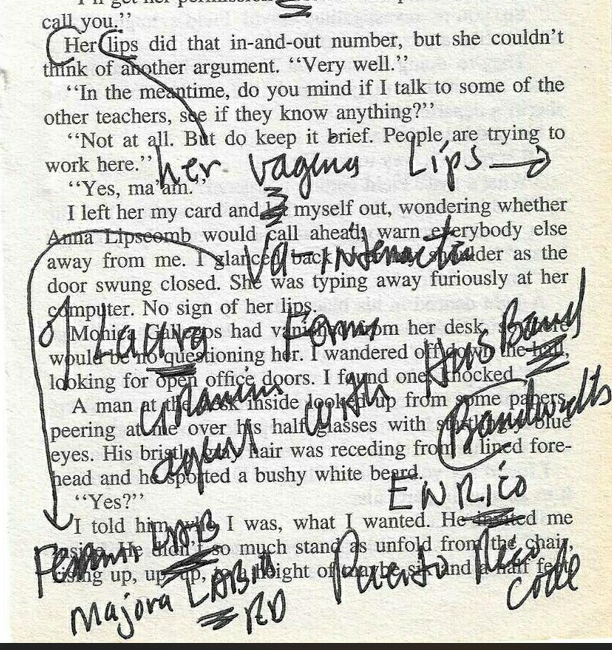 call you."
Her lips did that in-and-out number, but she couldn't
think of another argument. "Very well."
"In the meantime, do you mind if I talk to some of the
other teachers, see if they know anything?"
"Not at all. But do keep it brief. People are trying to
work here."
her vagina Lips
"Yes, ma'am."
I left her my card and let myself out, wondering whether
Anna Lipscomb would call ahead, warn everybody else
away from me. I glanced back shoulder as the
door swung closed. She was typing away furiously at her
computer. No sign of her lips.
of Laura Form HusBand
Monica Gallegos had vanished from her desk, so there
would be no questioning her. I wandered off down the hall,
looking for open office doors. I found one, knocked
with
Bandwidth
A man at the desk inside looked up from some papers,
peering at me over his half-glasses with blue
eyes. His bristly gray hair was receding from a lined fore-
head and he sported a bushy white beard.
agent
"Yes?"
ENRico
I told him who I was, what I wanted. He invited me
so much stand as unfold from the chair,
going up, up, up, height of maybe six and a half feet
LAB
Majora LABIA
RD
Puerto Rico
code